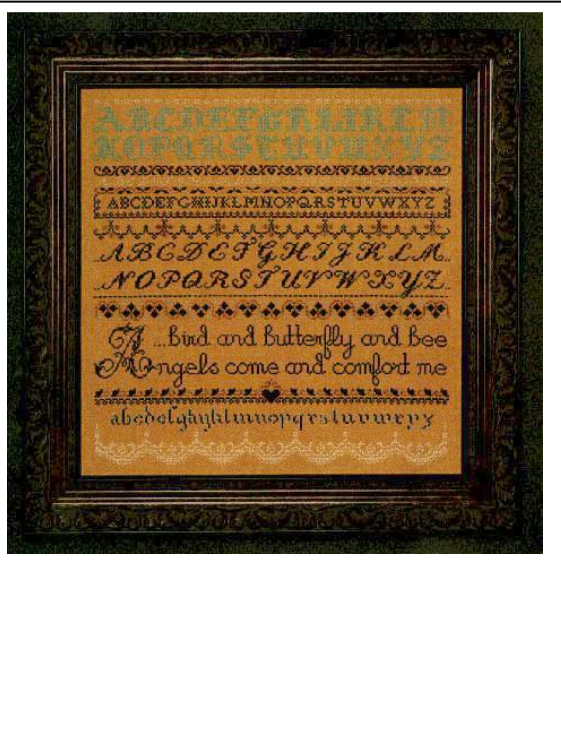 ABCDEFGHIJKLM
NOPQRSTUVWXYZ
ABCDEFGHIJKLMNOPQRSTUVWXYZ
ABCDEFGHIJKLM
NOPQRSTUVWXYZ
A ...Bird and Butterfly and Bee
Angels come and comfort me
abcdefghijklmnopqrstuvwxyz